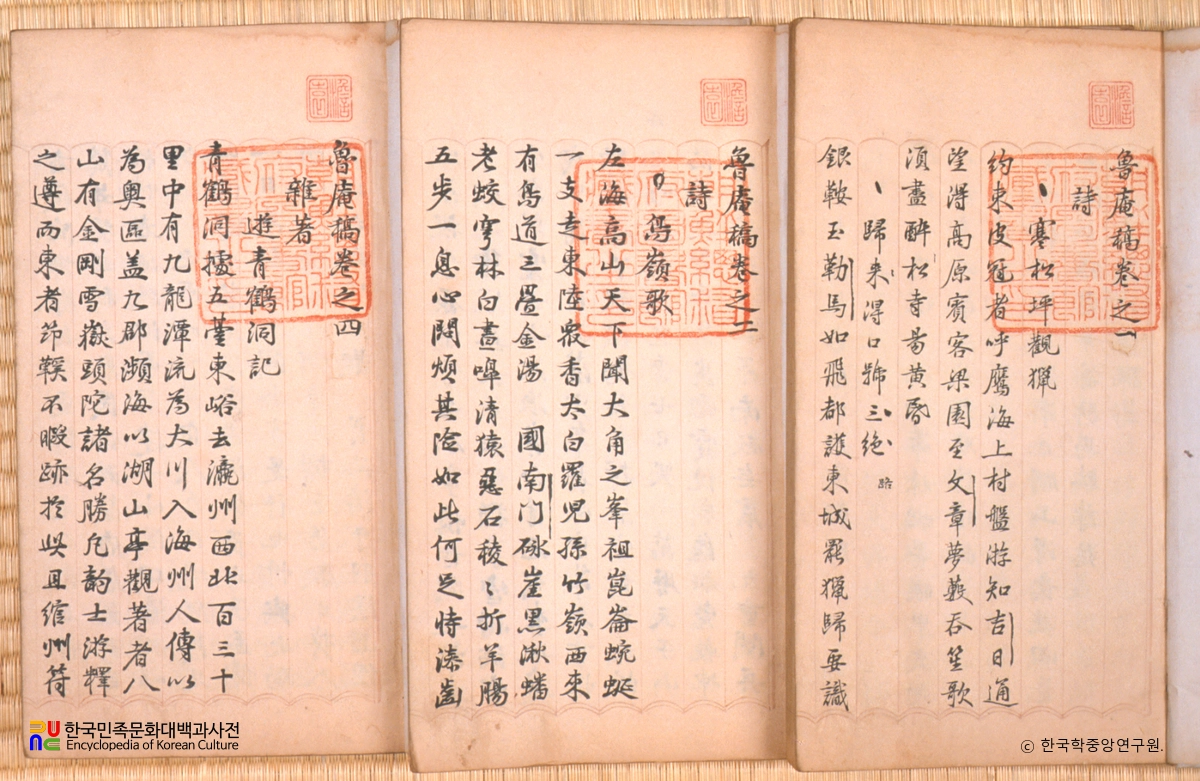 魯庵稿卷之一
詩
寒松坪觀獵
約束皮冠者呼鷹海上村盤游知吉日通
望得高原賓客梁園至文章夢藪吞笙歌
須盡醉松寺易黃昏
歸來得口號三絶
路
銀鞍玉勒馬如飛都護東城罷獵歸要識
魯庵稿卷之二
詩
鳥嶺歌
左海高山天下聞大角之峯祖崑崙蜿蜒
一支走東陸衆香太白羅兒孫竹嶺西来
有鳥道三疊金湯國南门砅崖黑湫蟠
老蛟穹林白晝嘷清猿惡石稜〻折羊腸
五步一息心悶煩其險如此何足恃漆齒
魯庵稿卷之四
雜著
遊青鶴洞記
青鶴洞據五臺東峪去瀛州西北百三十
里中有九龍潭流為大川入海州人傳以
為奥區盖九郡濒海以湖山亭觀著者八
山有金剛雪嶽頭陀諸名勝凡韵士游釋
之遵而東者笻鞵不暇跡扵此且綰州符
한국민족문화대백과사전
Encyclopedia of Korean Culture
© 한국학중앙연구원.